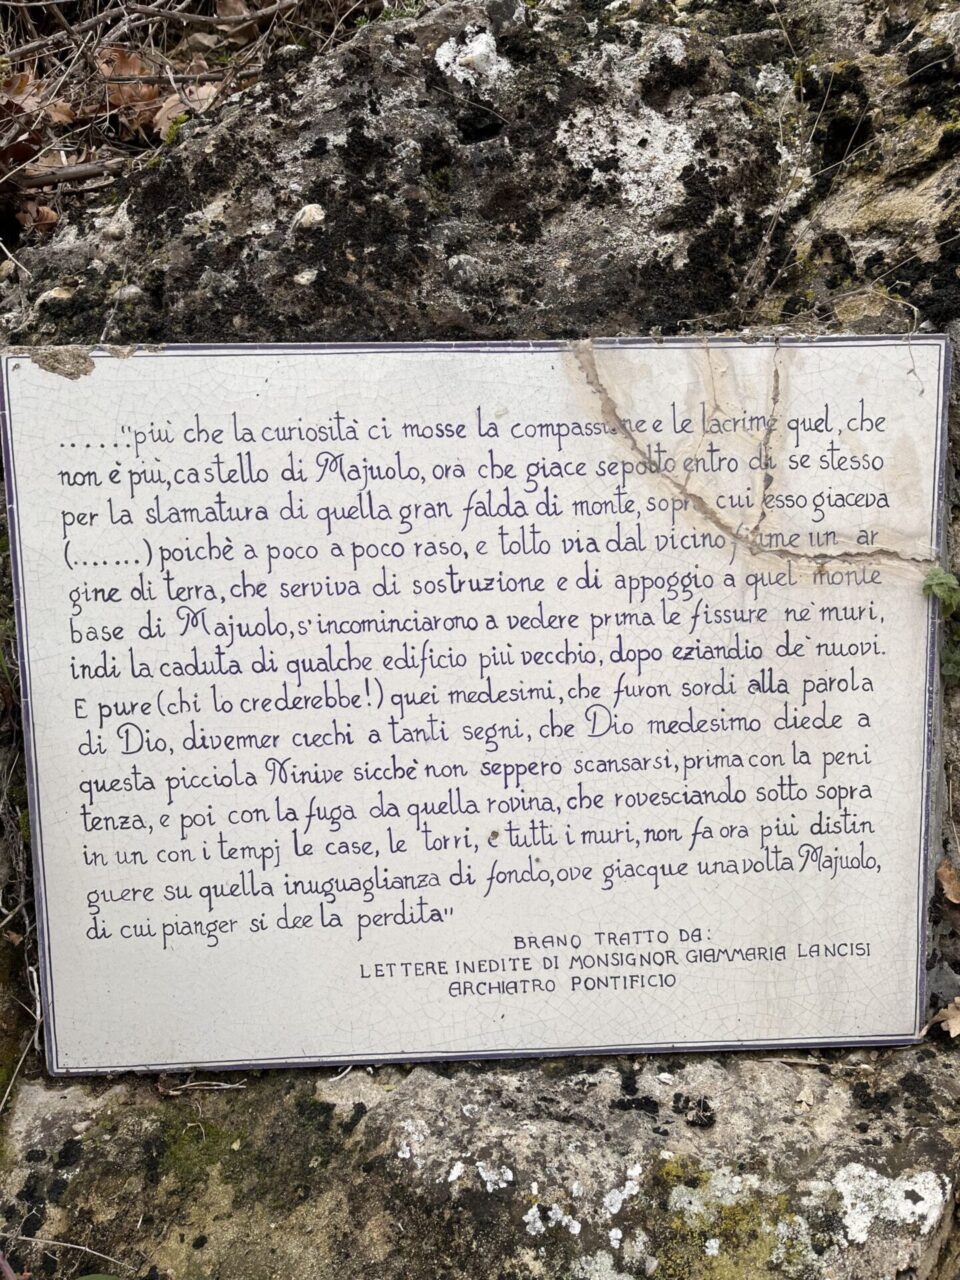 ......"più che la curiosità ci mosse la compassione e le lacrime quel, che
non è più, castello di Majuolo, ora che giace sepolto entro di se stesso
per la slamatura di quella gran falda di monte, sopra cui esso giaceva
(.......) poichè a poco a poco raso, e tolto via dal vicino fiume un ar
gine di terra, che serviva di sostruzione e di appoggio a quel monte
base di Majuolo, s'incominciarono a vedere prima le fissure ne' muri,
indi la caduta di qualche edificio più vecchio, dopo eziandio de' nuovi.
E pure (chi lo crederebbe!) quei medesimi, che furon sordi alla parola
di Dio, divenner ciechi a tanti segni, che Dio medesimo diede a
questa picciola Ninive sicchè non seppero scansarsi, prima con la peni
tenza, e poi con la fuga da quella rovina, che rovesciando sotto sopra
in un con i tempj le case, le torri, e tutti i muri, non fa ora più distin
guere su quella inuguaglianza di fondo, ove giacque una volta Majuolo,
di cui pianger si dee la perdita"
BRANO TRATTO DA:
LETTERE INEDITE DI MONSIGNOR GIAMMARIA LANCISI
ARCHIATRO PONTIFICIO